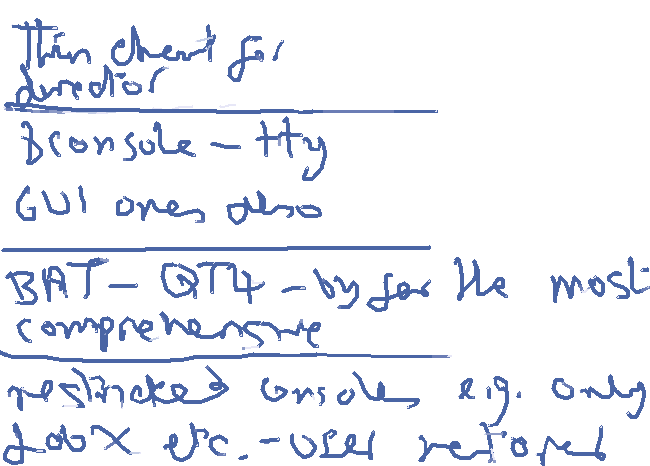 Thin client for
director
Bconsole - tty
GUI ones also
BAT - QT4 - by far the most
comprehensive
restricted consoles e.g. only
job X etc. - user restores